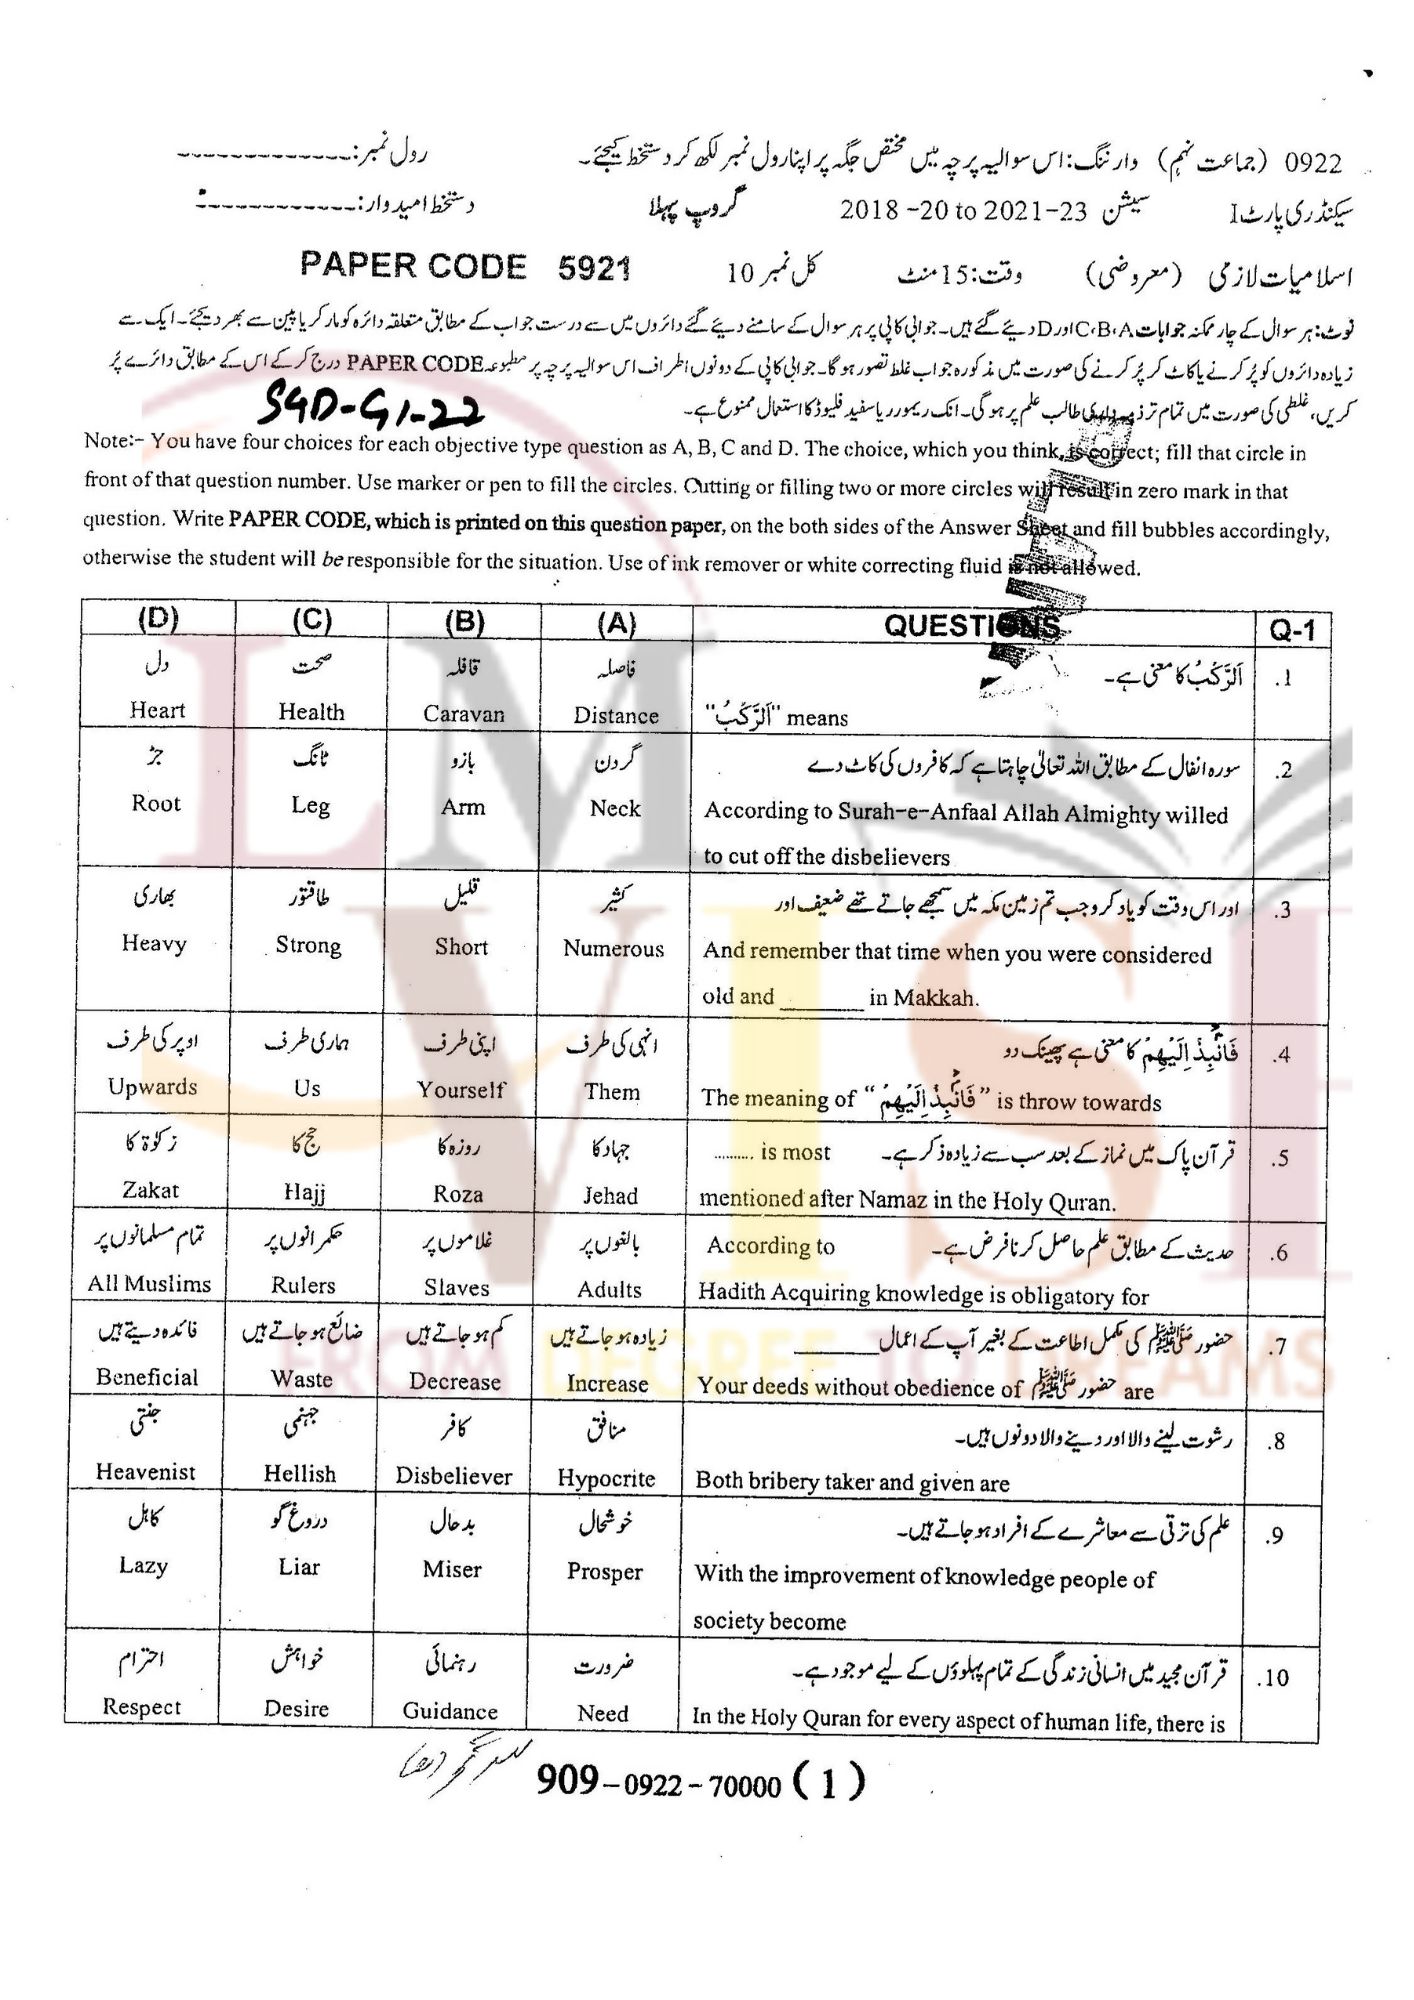 0922 (جماعت نہم) وارننگ: اس سوالیہ پرچہ میں مختص جگہ پر اپنا رول نمبر لکھ کر دستخط کیجئے۔ رول نمبر:-------------
سیکنڈری پارٹ I سیشن 2018-20 to 2021-23 گروپ پہلا دستخط امیدوار:------------
اسلامیات لازمی (معروضی) وقت: 15 منٹ کل نمبر 10 PAPER CODE 5921
نوٹ: ہر سوال کے چار ممکنہ جوابات C،B،A اور D دیئے گئے ہیں۔ جوابی کاپی پر ہر سوال کے سامنے دیئے گئے دائروں میں سے درست جواب کے مطابق متعلقہ دائرہ کو مارکر یا پین سے بھر دیجئے۔ ایک سے
زیادہ دائروں کو پُر کرنے یا کاٹ کر پُر کرنے کی صورت میں مذکورہ جواب غلط تصور ہوگا۔ جوابی کاپی کے دونوں اطراف اس سوالیہ پرچہ پر مطبوعہ PAPER CODE درج کر کے اس کے مطابق دائرے پُر
کریں، غلطی کی صورت میں تمام تر ذمہ داری طالب علم پر ہوگی۔ انک ریمور یا سفید فلیوڈ کا استعمال ممنوع ہے۔
SGD-G1-22
Note:- You have four choices for each objective type question as A, B, C and D. The choice, which you think, is correct; fill that circle in
front of that question number. Use marker or pen to fill the circles. Cutting or filling two or more circles will result in zero mark in that
question. Write PAPER CODE, which is printed on this question paper, on the both sides of the Answer Sheet and fill bubbles accordingly,
otherwise the student will be responsible for the situation. Use of ink remover or white correcting fluid is not allowed.
(D) (C) (B) (A) QUESTIONS Q-1
دل صحت قافلہ فاصلہ اَلرَّكْبُ کا معنی ہے۔ .1
Heart Health Caravan Distance "اَلرَّكْبُ" means
جڑ ٹانگ بازو گردن سورہ انفال کے مطابق اللہ تعالیٰ چاہتا ہے کہ کافروں کی کاٹ دے .2
Root Leg Arm Neck According to Surah-e-Anfaal Allah Almighty willed
to cut off the disbelievers
بھاری طاقتور قلیل کثیر اور اس وقت کو یاد کرو جب تم زمین مکہ میں سمجھے جاتے تھے ضعیف اور .3
Heavy Strong Short Numerous And remember that time when you were considered
old and ________ in Makkah.
اوپر کی طرف ہماری طرف اپنی طرف انہی کی طرف فَانْۢبِذْ اِلَيْهِمْ کا معنی ہے پھینک دو .4
Upwards Us Yourself Them The meaning of "فَانْۢبِذْ اِلَيْهِمْ" is throw towards
زکوٰۃ کا حج کا روزہ کا جہاد کا قرآن پاک میں نماز کے بعد سب سے زیادہ ذکر ہے۔ ......... is most .5
Zakat Hajj Roza Jehad mentioned after Namaz in the Holy Quran.
تمام مسلمانوں پر حکمرانوں پر غلاموں پر بالغوں پر حدیث کے مطابق علم حاصل کرنا فرض ہے۔ According to .6
All Muslims Rulers Slaves Adults Hadith Acquiring knowledge is obligatory for
فائدہ دیتے ہیں ضائع ہو جاتے ہیں کم ہو جاتے ہیں زیادہ ہو جاتے ہیں حضور ﷺ کی مکمل اطاعت کے بغیر آپ کے اعمال ________ .7
Beneficial Waste Decrease Increase Your deeds without obedience of حضور ﷺ are
جنتی جہنمی کافر منافق رشوت لینے والا اور دینے والا دونوں ہیں۔ .8
Heavenist Hellish Disbeliever Hypocrite Both bribery taker and given are
کاہل دروغ گو بدحال خوشحال علم کی ترقی سے معاشرے کے افراد ہو جاتے ہیں۔ .9
Lazy Liar Miser Prosper With the improvement of knowledge people of
society become
احترام خواہش رہنمائی ضرورت قرآن مجید میں انسانی زندگی کے تمام پہلوؤں کے لیے موجود ہے۔ .10
Respect Desire Guidance Need In the Holy Quran for every aspect of human life, there is
909-0922-70000 (1)
LM VISI
FROM DEGREE TO DREAMS